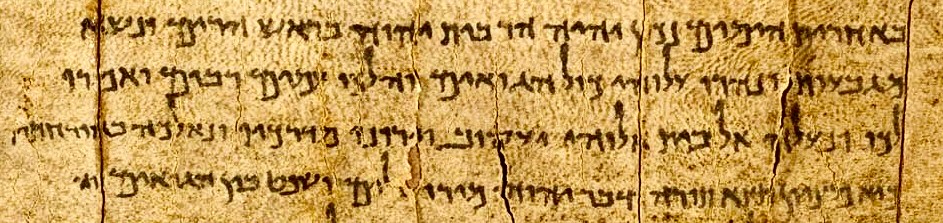 באחרית הימים נכון יהיה הר בית יהוה בראש הרים ונשא
מגבעות ונהרו עלוהי כול הגואים והלכו עמים רבים ואמרו
לכו ונעלה אל בית אלוהי יעקוב וירונו מדרכיו
כיא מציון תצא תורה ודבר יהוה מירושלים ושפט בין הגואים